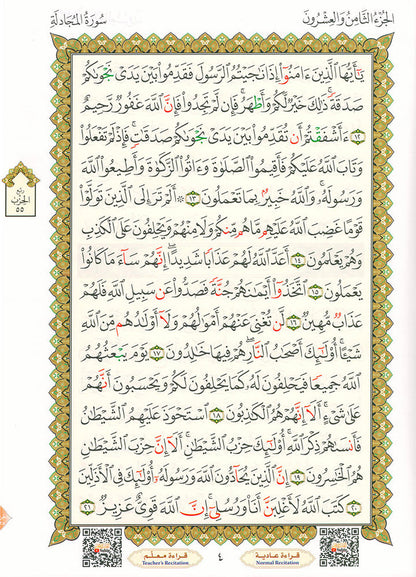 الجُزْءُ الثَّامِنُ وَالْعِشْرُونَ
سُورَةُ المُجَادلَةِ
يَٰٓأَيُّهَا ٱلَّذِينَ ءَامَنُوٓا۟ إِذَا نَٰجَيْتُمُ ٱلرَّسُولَ فَقَدِّمُوا۟ بَيْنَ يَدَىْ نَجْوَىٰكُمْ
صَدَقَةً ۚ ذَٰلِكَ خَيْرٌ لَّكُمْ وَأَطْهَرُ ۚ فَإِن لَّمْ تَجِدُوا۟ فَإِنَّ ٱللَّهَ غَفُورٌ رَّحِيمٌ
١٢ ءَأَشْفَقْتُمْ أَن تُقَدِّمُوا۟ بَيْنَ يَدَىْ نَجْوَىٰكُمْ صَدَقَٰتٍ ۚ فَإِذْ لَمْ تَفْعَلُوا۟
وَتَابَ ٱللَّهُ عَلَيْكُمْ فَأَقِيمُوا۟ ٱلصَّلَوٰةَ وَءَاتُوا۟ ٱلزَّكَوٰةَ وَأَطِيعُوا۟ ٱللَّهَ
وَرَسُولَهُۥ ۚ وَٱللَّهُ خَبِيرٌۢ بِمَا تَعْمَلُونَ ١٣ ۞ أَلَمْ تَرَ إِلَى ٱلَّذِينَ تَوَلَّوْا۟
قَوْمًا غَضِبَ ٱللَّهُ عَلَيْهِم مَّا هُم مِّنكُمْ وَلَا مِنْهُمْ وَيَحْلِفُونَ عَلَى ٱلْكَذِبِ
وَهُمْ يَعْلَمُونَ ١٤ أَعَدَّ ٱللَّهُ لَهُمْ عَذَابًا شَدِيدًا ۖ إِنَّهُمْ سَآءَ مَا كَانُوا۟
يَعْمَلُونَ ١٥ ٱتَّخَذُوٓا۟ أَيْمَٰنَهُمْ جُنَّةً فَصَدُّوا۟ عَن سَبِيلِ ٱللَّهِ فَلَهُمْ
عَذَابٌ مُّهِينٌ ١٦ لَّن تُغْنِىَ عَنْهُمْ أَمْوَٰلُهُمْ وَلَآ أَوْلَٰدُهُم مِّنَ ٱللَّهِ
شَيْـًٔا ۚ أُو۟لَٰٓئِكَ أَصْحَٰبُ ٱلنَّارِ ۖ هُمْ فِيهَا خَٰلِدُونَ ١٧ يَوْمَ يَبْعَثُهُمُ
ٱللَّهُ جَمِيعًا فَيَحْلِفُونَ لَهُۥ كَمَا يَحْلِفُونَ لَكُمْ ۖ وَيَحْسَبُونَ أَنَّهُمْ
عَلَىٰ شَىْءٍ ۚ أَلَآ إِنَّهُمْ هُمُ ٱلْكَٰذِبُونَ ١٨ ٱسْتَحْوَذَ عَلَيْهِمُ ٱلشَّيْطَٰنُ
فَأَنسَىٰهُمْ ذِكْرَ ٱللَّهِ ۚ أُو۟لَٰٓئِكَ حِزْبُ ٱلشَّيْطَٰنِ ۚ أَلَآ إِنَّ حِزْبَ ٱلشَّيْطَٰنِ
هُمُ ٱلْخَٰسِرُونَ ١٩ إِنَّ ٱلَّذِينَ يُحَآدُّونَ ٱللَّهَ وَرَسُولَهُۥٓ أُو۟لَٰٓئِكَ فِى ٱلْأَذَلِّينَ
٢٠ كَتَبَ ٱللَّهُ لَأَغْلِبَنَّ أَنَا۠ وَرُسُلِىٓ ۚ إِنَّ ٱللَّهَ قَوِىٌّ عَزِيزٌ ٢١
ربع
الحزب
٥٥
قراءة عادية
Normal Recitation
٤
قراءة معلم
Teacher's Recitation